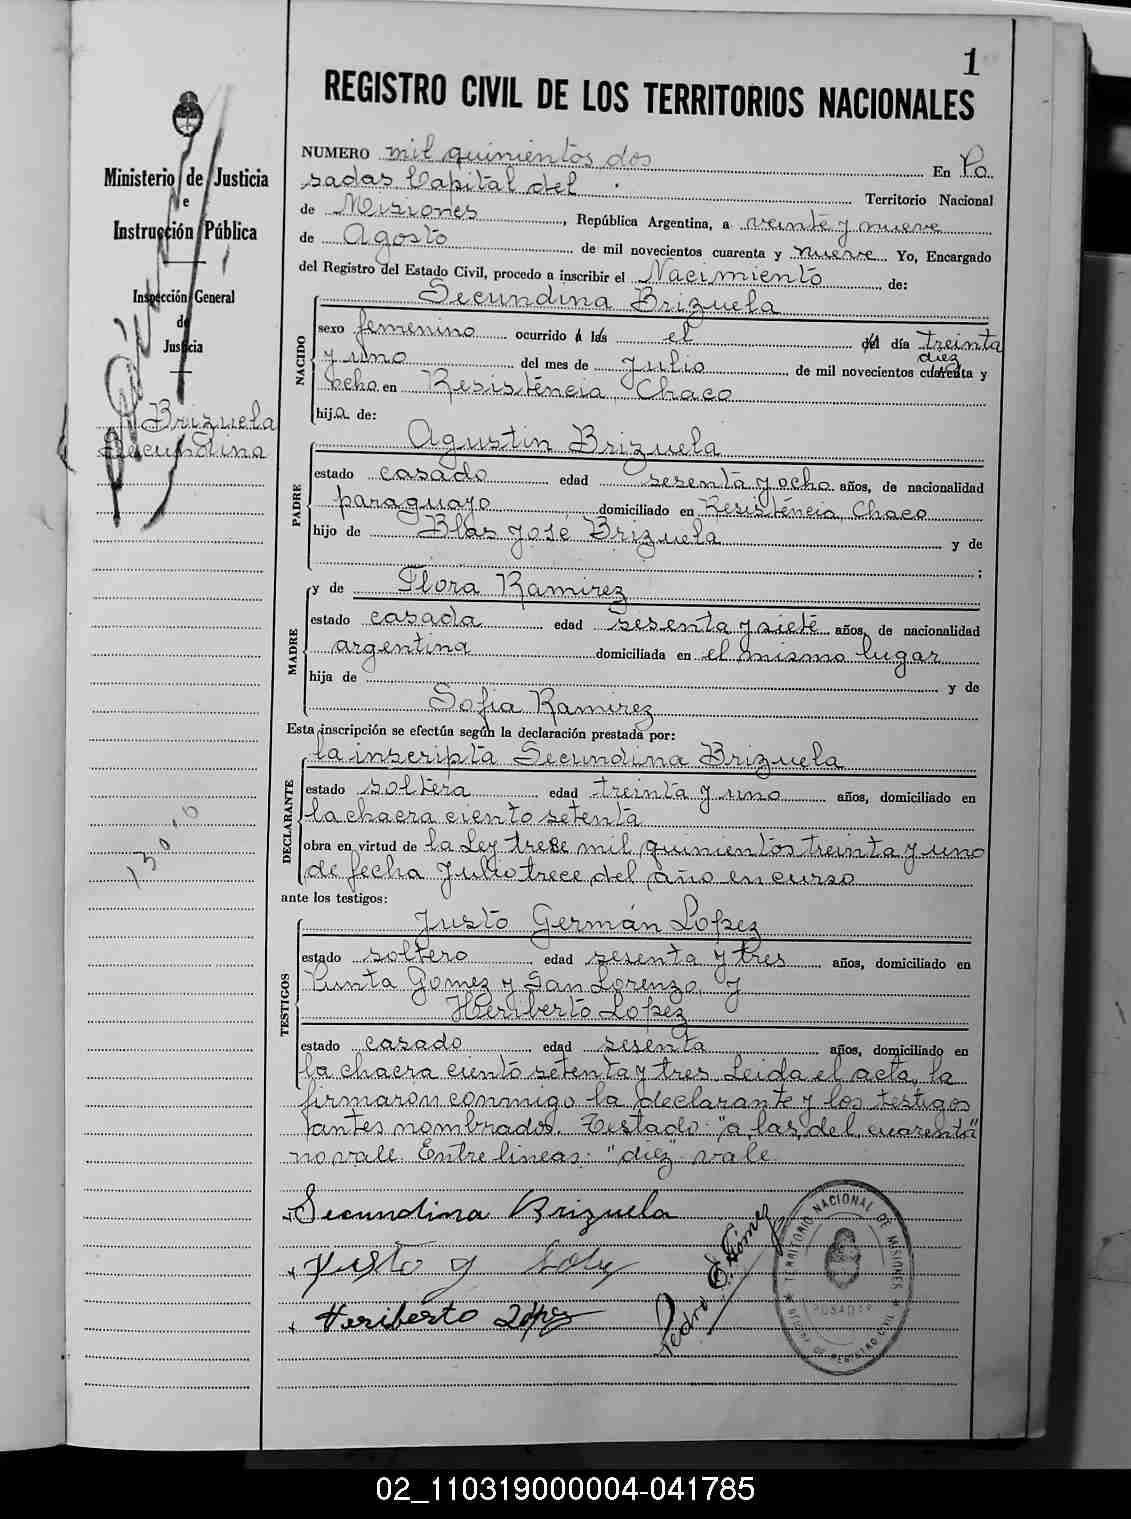 1
REGISTRO CIVIL DE LOS TERRITORIOS NACIONALES
Ministerio de Justicia
e
Instrucción Pública
Inspección General
de
Justicia
Brizuela
Secundina
NUMERO mil quinientos dos En Po
sadas Capital del Territorio Nacional
de Misiones, República Argentina, a veinte y nueve
de Agosto de mil novecientos cuarenta y nueve Yo, Encargado
del Registro del Estado Civil, procedo a inscribir el Nacimiento de:
NACIDO
Secundina Brizuela
sexo femenino ocurrido á las el del día treinta
diez
y uno del mes de Julio de mil novecientos cuarenta y
ocho en Resisténcia Chaco
hija de:
PADRE
Agustin Brizuela
estado casado edad sesenta y ocho años, de nacionalidad
paraguayo domiciliado en Resisténcia, Chaco
hijo de Blas José Brizuela y de
;
MADRE
y de Flora Ramirez
estado casada edad sesenta y siete años, de nacionalidad
argentina domiciliada en el mismo lugar
hija de y de
Sofia Ramirez
Esta inscripción se efectúa según la declaración prestada por:
DECLARANTE
la inscripta Secundina Brizuela
estado soltera edad treinta y uno años, domiciliado en
la chacra ciento setenta
obra en virtud de la Ley trece mil quinientos treinta y uno
de fecha Julio trece del año en curso
ante los testigos:
TESTIGOS
Justo Germán Lopez
estado soltero edad sesenta y tres años, domiciliado en
Punta Gomez y San Lorenzo y
Heriberto Lopez
estado casado edad sesenta años, domiciliado en
la chacra ciento setenta y tres. Leida el acta, la
firmaron conmigo la declarante y los testigos
antes nombrados. Testado: "a, las, del, cuarenta"
no vale. Entre lineas: "diez" vale.
Secundina Brizuela
Justo G
Heriberto López
Pedro E. Gómez
TERRITORIO NACIONAL DE MISIONES
POSADAS
OFICINA DE REGISTRO CIVIL
02_110319000004-041785